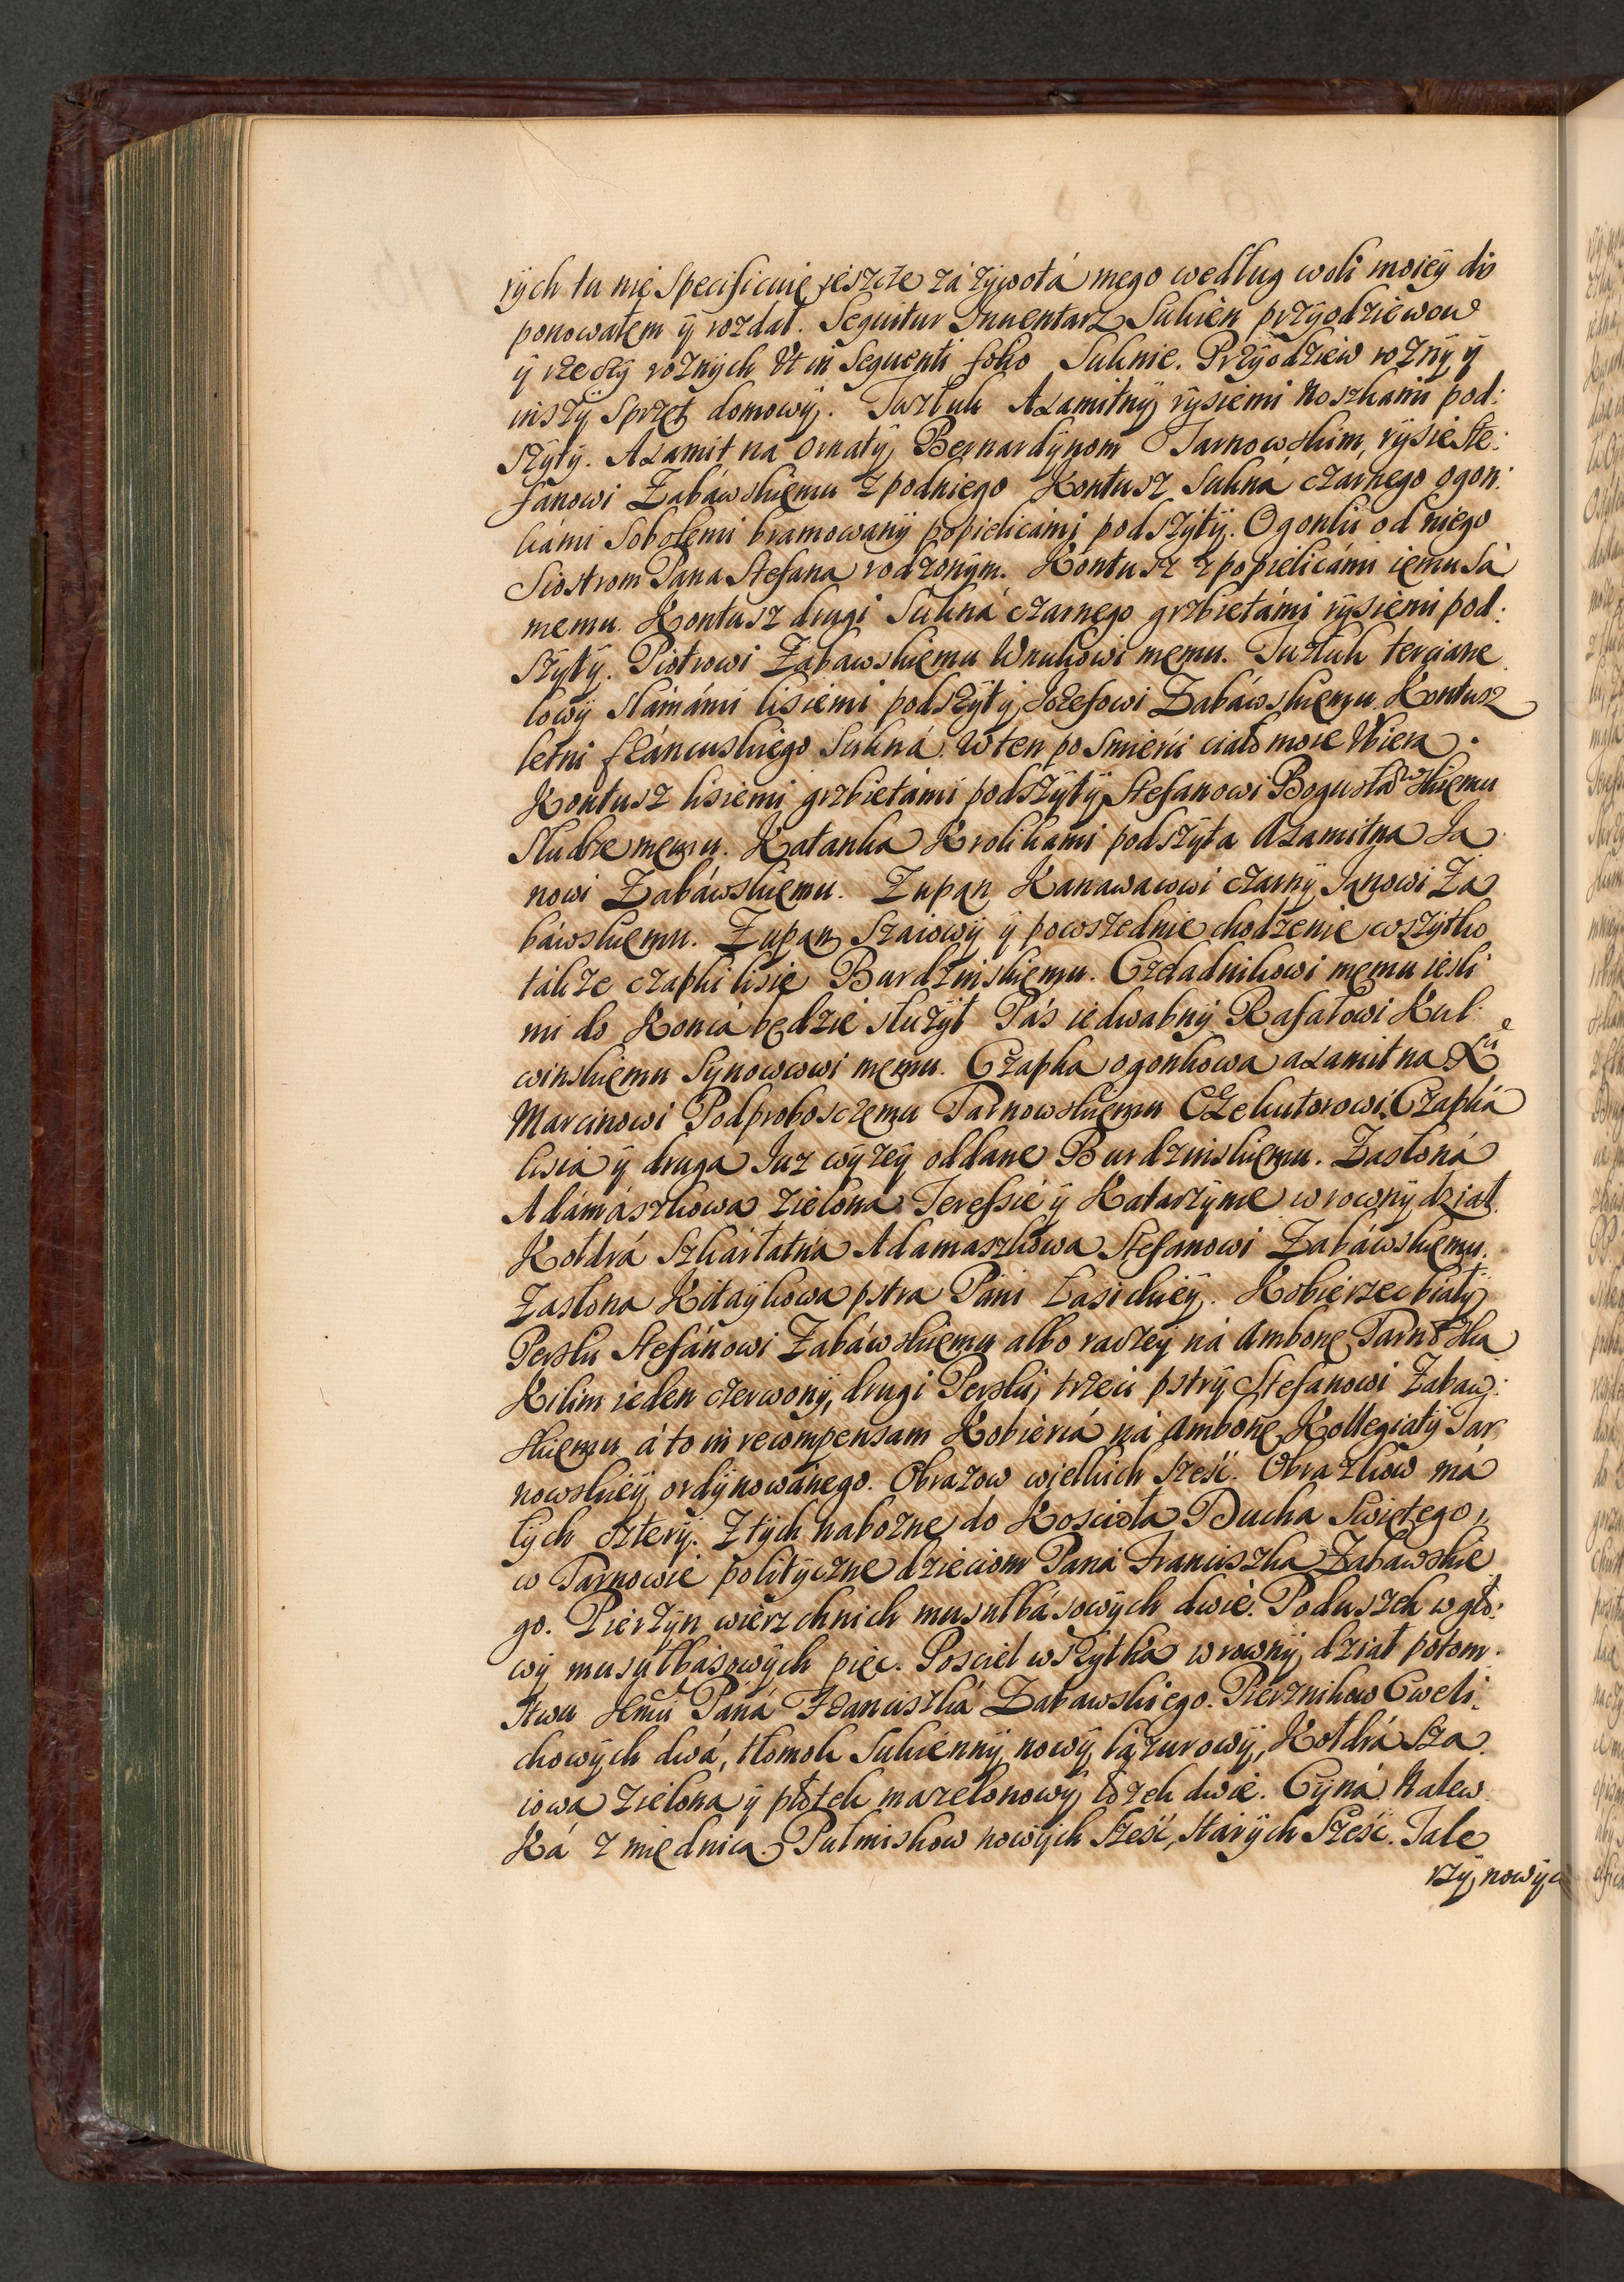 rých tu nie Specificuię ieszcze zá żÿwotá mego według woli moieÿ dis
ponowałem ÿ rozdał. Sequitur Inuentarz Sukien przÿodziewow
ÿ rzeczÿ roznÿch Vt in Sequenti folio Suknie. Przÿodziew roznÿ ÿ
inszÿ Sprzęt domowÿ. Tuzluk Axamitnÿ rÿsiemi noszkami pod:
szÿtÿ. Axamit na Ornatÿ Bernardÿnom Tarnowskim, rÿsie Ste:
fanowi Zabáwskiemu z podniego Kontusz Sukná czarnego ogon:
kámi Sobolemi bramowanÿ popielicámi podszÿtÿ. Ogonki od niego
Siostrom Pana Stefana rodzonÿm. Kontusz z popielicámi iemu sá
memu. Kontusz drugi Sukná czarnego grzbietámi rÿsiemi pod:
szÿtÿ. Piotrowi Zabawskiemu Wnukowi memu. Tuzluk terciane
lowÿ slámámi lisiemi podszÿtÿ Jozefowi Zabáwskiemu. Kontusz
letni fráncuskiego Sukná. W ten po Smierći ciało moie Vbiera.
Kontusz lisiemi grzbietámi podszÿtÿ Stefanowi Bogusławskiemu
Słudze memu. Katanka Krolikami podszÿta Axamitna Ja
nowi Zabáwskiemu. Zupan Kanawacowi czarnÿ Janowi Za
báwskiemu. Zupan Szaiowÿ ÿ powszednie chodzenie wszÿtko
tákze czapki lisie Burdzinskiemu. Czeladnikowi memu iesli
mi do Koncá będzie służÿł Pás iedwabnÿ Rafałowi Kul:
winskiemu Sÿnowcowi memu. Czapka ogonkowa axamitna Xie
Marcinowi Podproboszczemu Tarnowskiemu Exekutorowi. Czapká
lisia ÿ druga Juz wÿzeÿ oddane Burdzinskiemu. Zasłoná
Adámászkowa zielona Teressie ÿ Katarzÿnie w rownÿ dział.
Kołdrá Szkárłatna Adamaszkowa Stefanowi Zabáwskiemu.
Zasłona Kitaÿkowa pstra Pani Łasickieÿ. Kobierzec białÿ
Perski Stefánowi Zabáwskiemu albo raczeÿ ná Ambonę Tarnowską
Kilim ieden czerwonÿ, drugi Perski, trzeci pstrÿ Stefanowi Zabaw:
skiemu á to in recompensam Kobiercá ná Ambonę Kollegiatÿ Tar
nowskieÿ ordÿnowánego. Obrazow wielkich sześć. Obrazkow má
łÿch czterÿ. Z tÿch nabozne do Koscioła Ducha Swiętego
w Tarnowie politÿczne dzieciom Paná Franciszka Zabawskie
go. Pierzÿn wierzchnich musułbásowÿch dwie. Poduszek w gło:
wÿ musułbasowÿch pięć. Posciel wszÿtka w rownÿ dział potom:
stwu Jmci Páná Franciszká Zabawskiego. Pierznikow Cweli:
chowÿch dwá, tłomok Sukiennÿ nowÿ lázurowÿ, Kołdrá sza
iowa zielona ÿ płotek mazelonowÿ łozek dwie. Cÿná. Nalew
ká z miednicą. Pułmiskow nowÿch sześć, starÿch sześć. Tale
rzÿ nowÿc